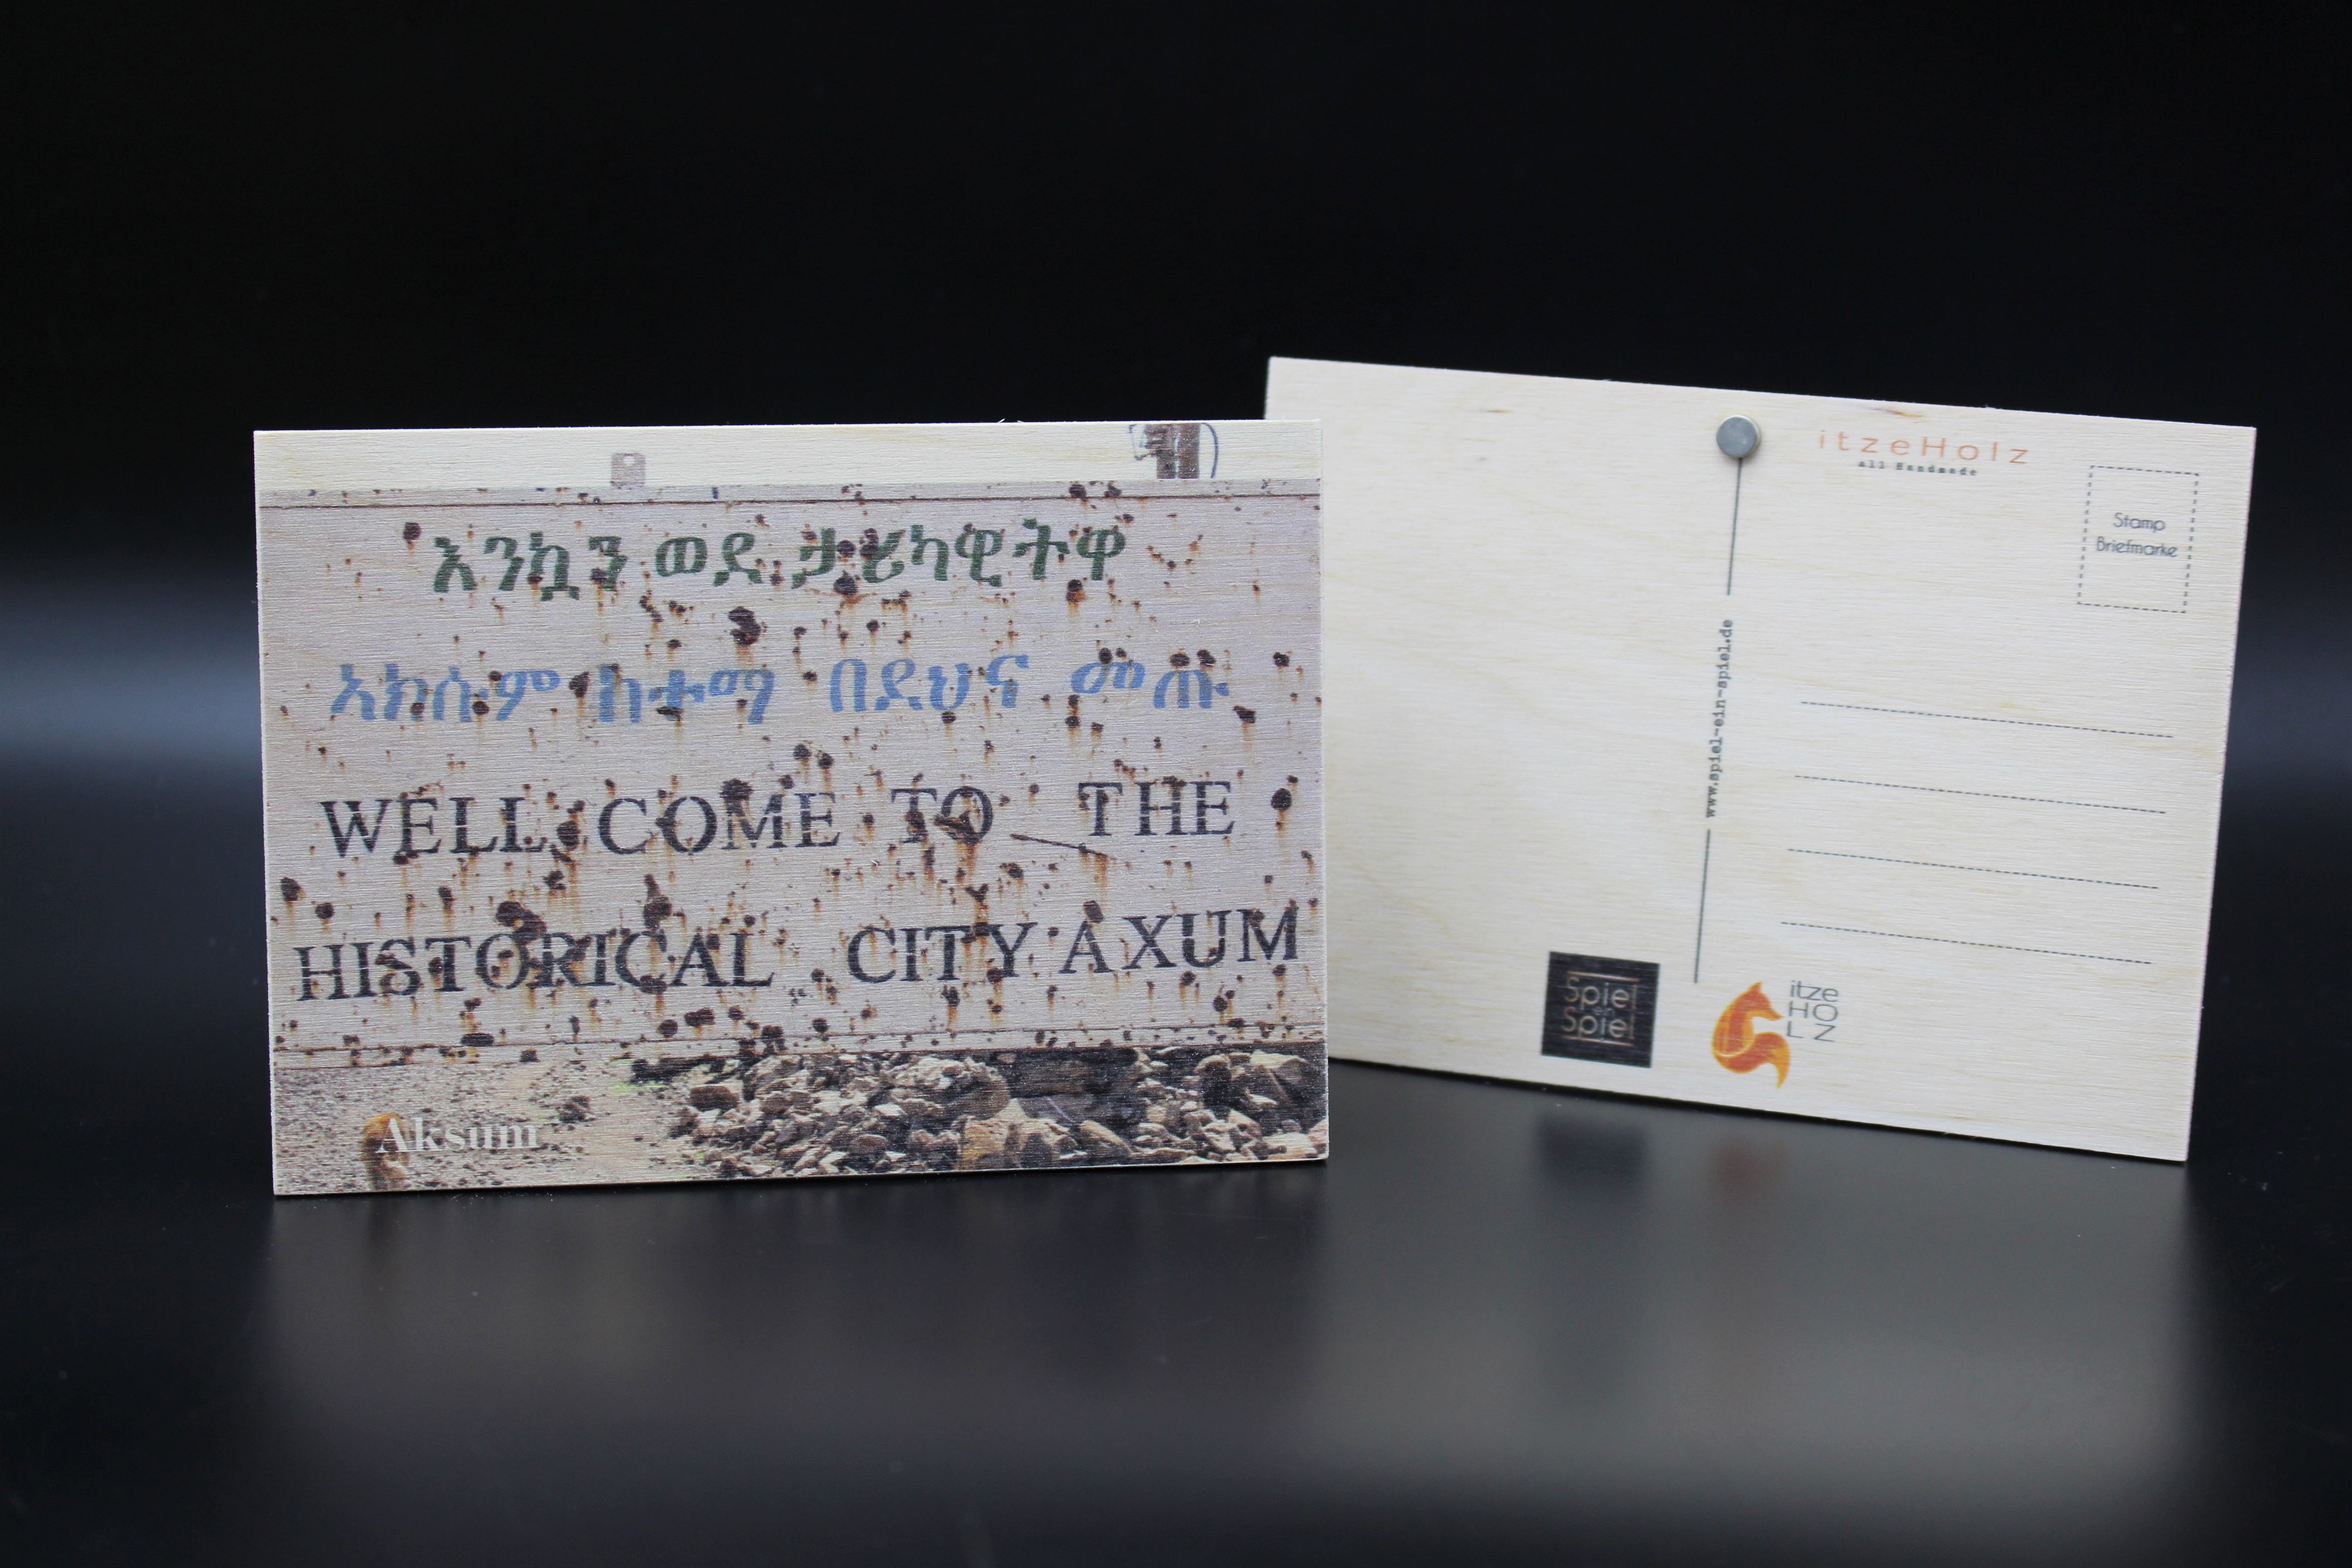 እንኳን ወደ ታሪካዊትዋ
አክሱም ከተማ በደህና መጡ
WELL COME TO THE
HISTORICAL CITY AXUM
Aksum
itzeHolz
all Handmade
Stamp
Briefmarke
www.spiel-ein-spiel.de
Spiel
ein
Spiel
itze
HO
LZ